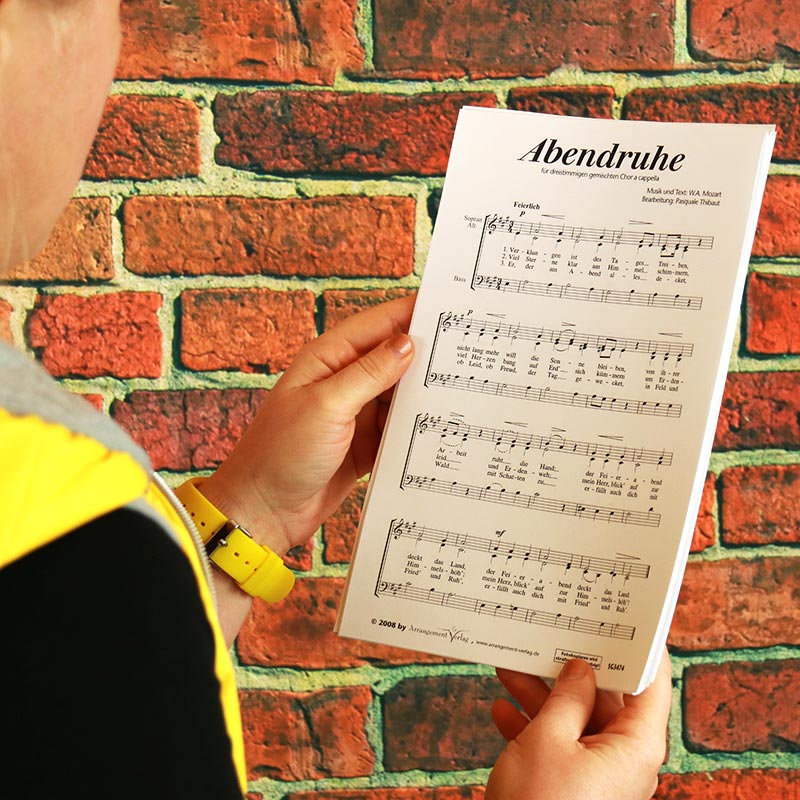 Abendruhe
für dreistimmigen gemischten Chor a cappella
Musik und Text: W.A. Mozart
Bearbeitung: Pasquale Thibaut
Feierlich
p
Sopran
Alt
1. Ver - klun - gen ist des Ta - ges Trei - ben,
2. Viel Ster - ne klar am Him - mel schim - mern,
3. Er, der am A - bend al - les de - cket,
Bass
p
nicht lang mehr will die Son - ne blei - ben, von ih - rer
viel Her - zen bang auf Erd' sich küm - mern um Er - den -
ob Leid, ob Freud, der Tag ge - we - cket, in Feld und
Ar - beit ruht die Hand; der Fei - er - a - bend
leid und Er - den - weh; mein Herz, blick' auf zur
Wald mit Schat - ten zu, er - füllt auch dich mit
mf
deckt das Land, der Fei - er - a - bend deckt das Land.
Him - mels - höh', mein Herz, blick' auf zur Him - mels - höh'!
Fried' und Ruh', er - füllt auch dich mit Fried' und Ruh'.
© 2008 by Arrangement Verlag , www.arrangement-verlag.de
Fotokopieren wird
SG3474